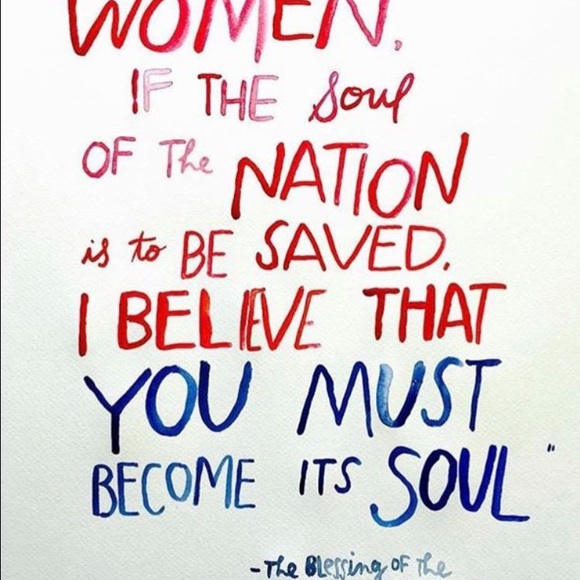 WOMEN,
IF THE Soul
OF The NATION
is to BE SAVED,
I BELIEVE THAT
YOU MUST
BECOME ITS SOUL"
-The Blessing OF The